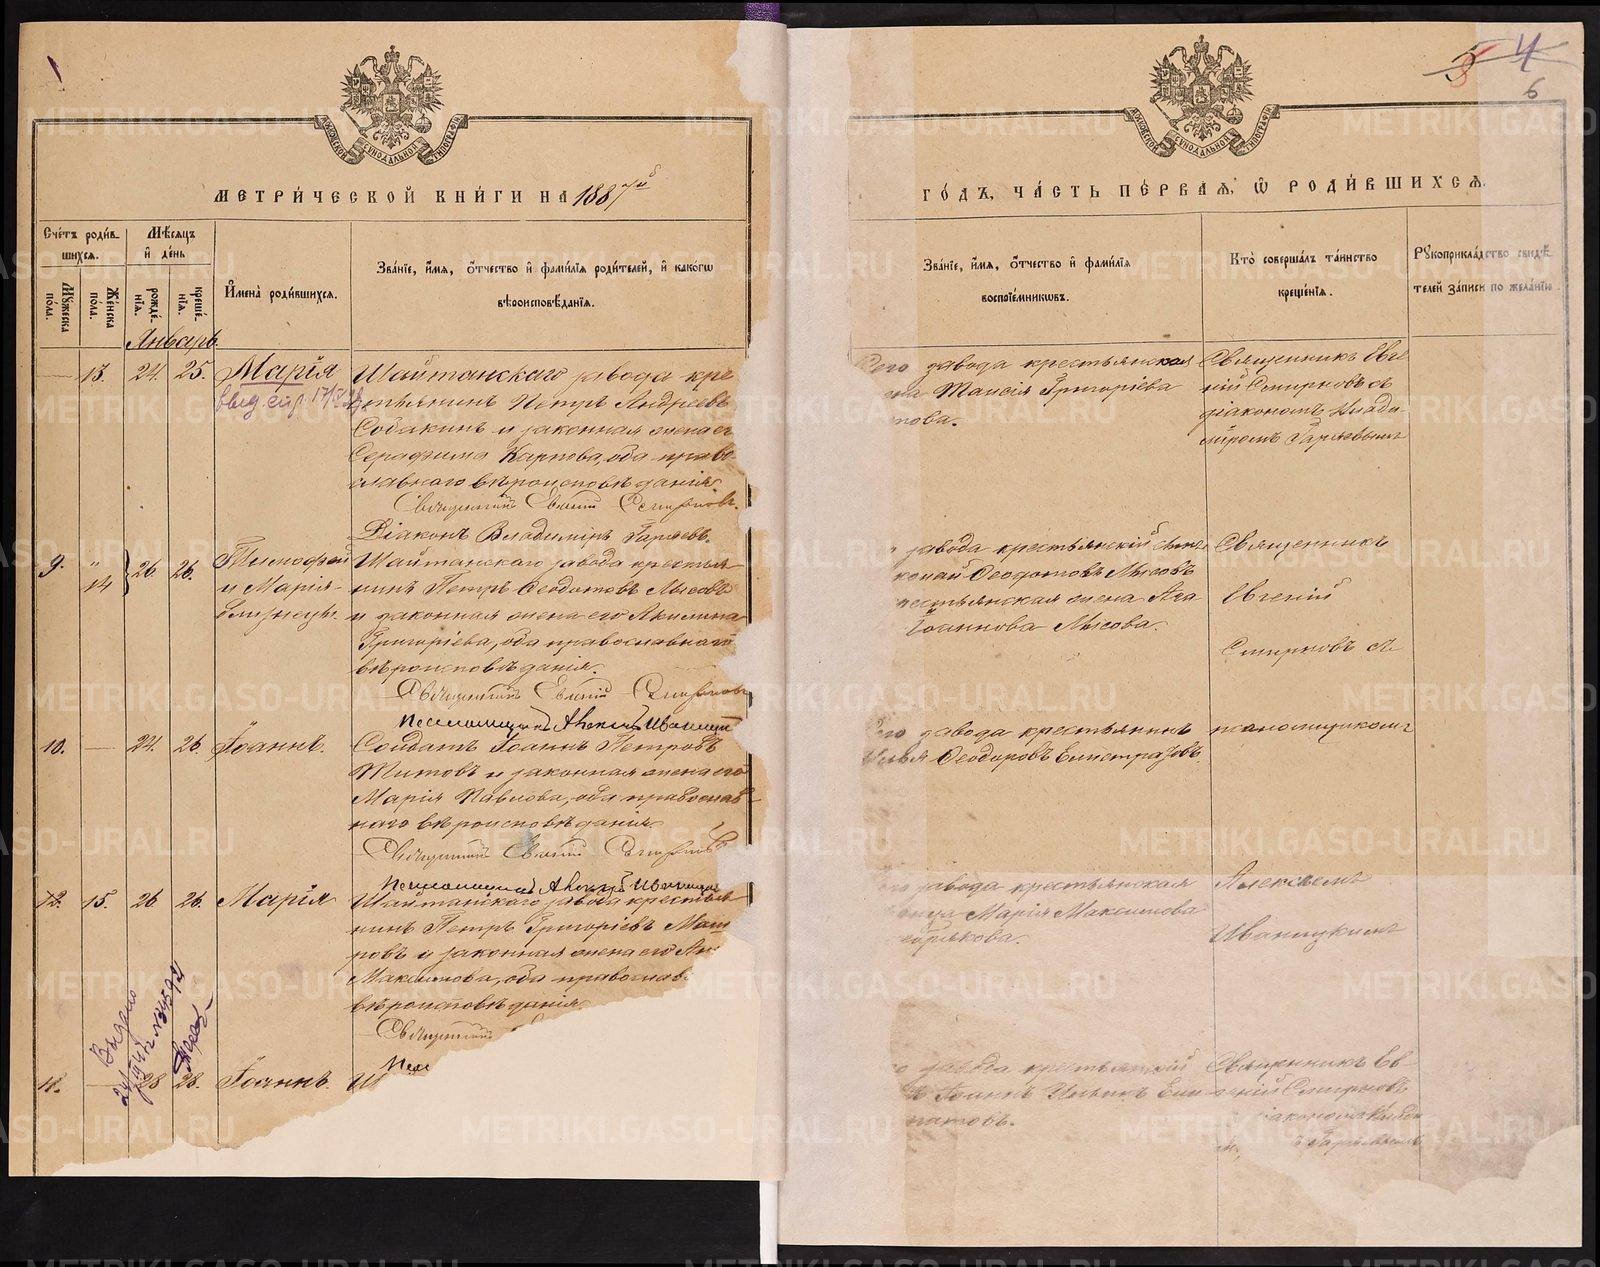 МЕТРИ́ЧЕСКОЙ КНИ́ГИ НА 1887й
Сче́тъ роди́в-
шихся.
Мѣ́сяцъ
и҆ де́нь
Мꙋ́жеска
по́ла.
Же́нска
по́ла.
рожде́-
нїя.
креще́-
нїя.
И҆мена̀ роди́вшихся.
Зва́нїе, и҆́мя, ѻ҆́тчество и҆ фами́лїя роди́телей, и҆ како́гѡ
вѣроисповѣ́данїя.
Январь.
13. 24. 25. Марія
Шайтанскаго завода кре
стьянинъ Петръ Андреевъ
Собакинъ и законная жена ег
Серафима Карпова, оба право-
славнаго вѣроисповѣданія.
Священникъ Евгеній Смирновъ.
Діаконъ Владиміръ Гаряевъ.
9. " 14 26. 26. Тимофей
и Марія-
близнецы.
Шайтанскаго завода крестья
нинъ Петръ Ѳеодотовъ Мысовъ
и законная жена его Акилина
Григоріева, оба православнаго
вѣроисповѣданія.
Священникъ Евгеній Смирновъ
Псаломщикъ Алексѣй Иваницкій
10. 24. 26. Іоаннъ.
Солдатъ Іоаннъ Петровъ
Титовъ и законная жена его
Марія Павлова, оба православ-
наго вѣроисповѣданія.
Священникъ Евгеній Смирновъ
Псаломщикъ Алексѣй Иваницкій
12. 15. 26. 26. Марія
Шайтанскаго завода крестья
нинъ Петръ Григоріевъ
и законная жена его
Максимова, оба православ
вѣроисповѣданія.
Священникъ
Выдано
11. 28 28. Іоаннъ.
Ш
5 4
6
ГО́ДЪ, ЧА́СТЬ ПЕ́РВАЯ, Ѡ҆ РОДИ́ВШИХСЯ.
Зва́нїе, и҆́мя, ѻ҆́тчество и҆ фами́лїя
воспрїе́мникѡвъ.
Кто̀ соверша́лъ та́инство
креще́нїя.
Рꙋкоприкла́дство свидѣ́-
телей за́писи по жела́нїю.
Сего завода крестьянская
жена Таисія Григоріева
това.
Священникъ Евге
ній Смирновъ съ
діакономъ Влади-
міромъ Гаряевымъ
завода крестьянскій
Ѳеодотовъ Мысовъ
крестьянская жена Ага
Іоаннова Мысова.
Священникъ
Евгеній
Смирновъ съ
Сего завода крестьянинъ
Илья Ѳеодоровъ Епистратовъ.
псаломщикомъ
завода крестьянская
Марія Максимова
Алексѣемъ
Иваницкимъ
завода крестьянскій
Іоаннъ Ильинъ Епи
Священникъ Ев-
геній Смирновъ
діакономъ Влади
Гаряевымъ
METRIKI.GASO-URAL.RU